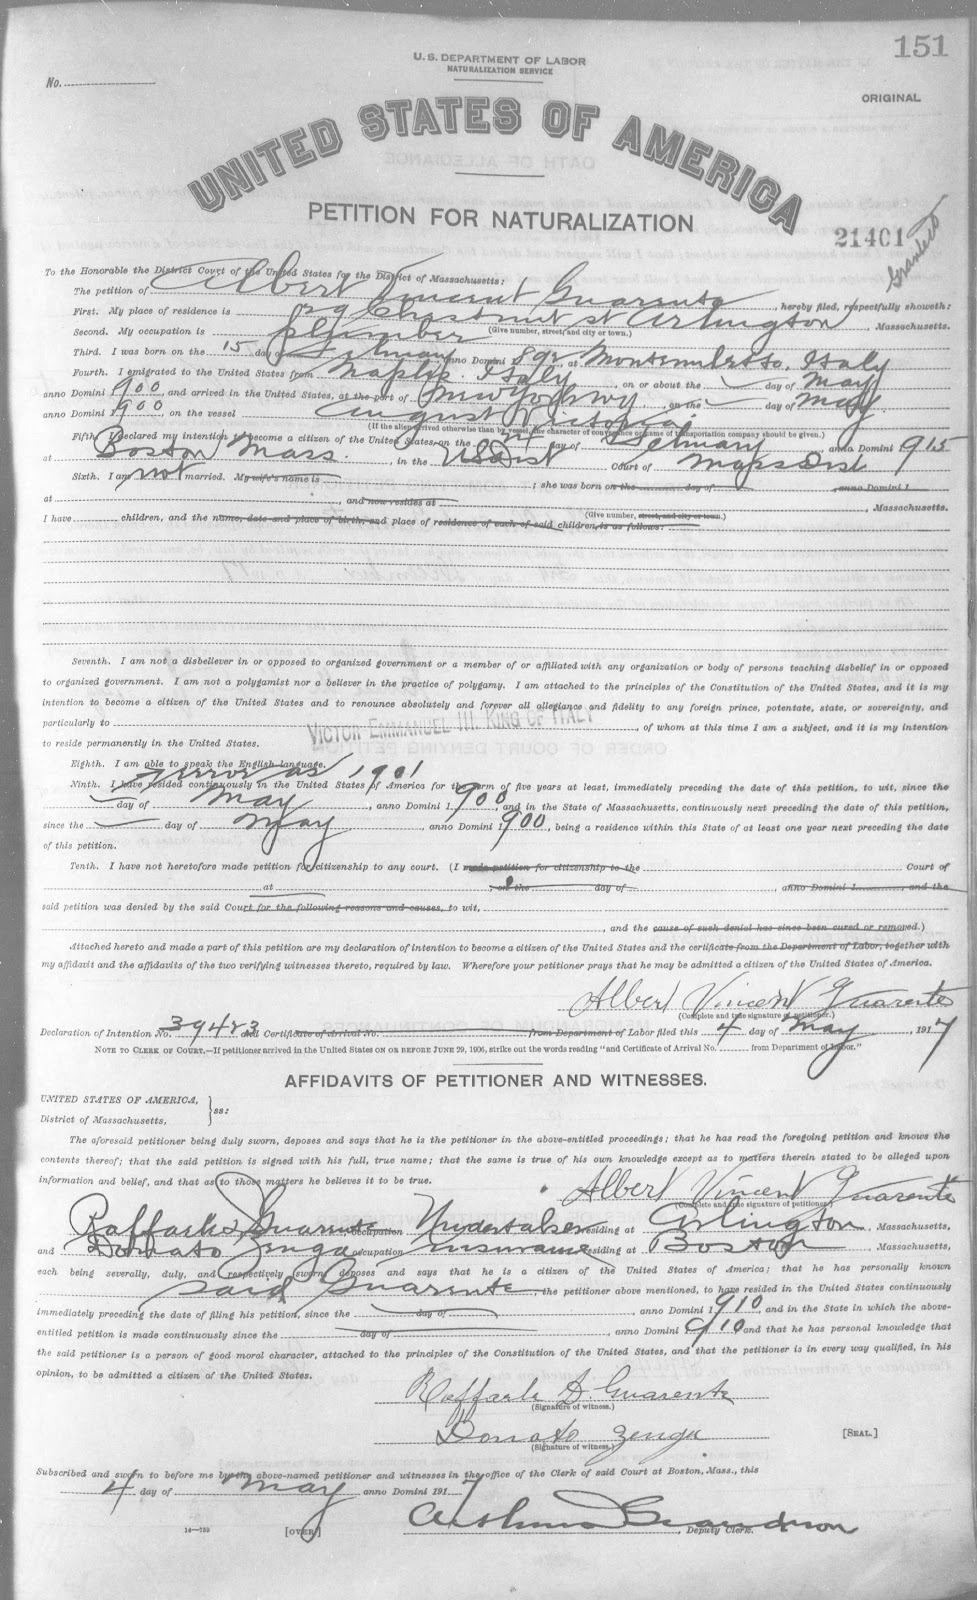 151
U.S. DEPARTMENT OF LABOR
NATURALIZATION SERVICE
No.
ORIGINAL
UNITED STATES OF AMERICA
PETITION FOR NATURALIZATION
21401
Granted
To the Honorable the District Court of the United States for the District of Massachusetts:
The petition of Albert Vincent Guarente hereby filed, respectfully showeth:
First. My place of residence is Chestnut St Arlington, Massachusetts.
(Give number, street, and city or town.)
Second. My occupation is plumber
Third. I was born on the 15 day of , anno Domini 1892, at , Italy
Fourth. I emigrated to the United States from Naples, Italy, on or about the day of May
anno Domini 1900, and arrived in the United States, at the port of New York NY on the day of May
anno Domini 1900, on the vessel August Victoria
(If the alien arrived otherwise than by vessel, the character of conveyance or name of transportation company should be given.)
Fifth. I declared my intention to become a citizen of the United States on the day of anno Domini 1915
at Boston Mass., in the US Dist Court of Mass Dist
Sixth. I am not married. My wife's name is ; she was born on the day of anno Domini 1
at , and now resides at , Massachusetts.
(Give number, street, and city or town.)
I have children, and the name, date and place of birth, and place of residence of each of said children, is as follows:
Seventh. I am not a disbeliever in or opposed to organized government or a member of or affiliated with any organization or body of persons teaching disbelief in or opposed
to organized government. I am not a polygamist nor a believer in the practice of polygamy. I am attached to the principles of the Constitution of the United States, and it is my
intention to become a citizen of the United States and to renounce absolutely and forever all allegiance and fidelity to any foreign prince, potentate, state, or sovereignty, and
particularly to VICTOR EMMANUEL III, KING OF ITALY, of whom at this time I am a subject, and it is my intention
to reside permanently in the United States.
Eighth. I am able to speak the English language.
error as 1901
Ninth. I have resided continuously in the United States of America for the term of five years at least, immediately preceding the date of this petition, to wit, since the
day of May, anno Domini 1900, and in the State of Massachusetts, continuously next preceding the date of this petition,
since the day of May anno Domini 1900, being a residence within this State of at least one year next preceding the date
of this petition.
Tenth. I have not heretofore made petition for citizenship to any court. (I made petition for citizenship to the Court of
at , on the day of anno Domini 1 , and the
said petition was denied by the said Court for the following reasons and causes, to wit,
, and the cause of such denial has since been cured or removed.)
Attached hereto and made a part of this petition are my declaration of intention to become a citizen of the United States and the certificate from the Department of Labor, together with
my affidavit and the affidavits of the two verifying witnesses thereto, required by law. Wherefore your petitioner prays that he may be admitted a citizen of the United States of America.
Albert Vincent Guarente
(Complete and true signature of petitioner.)
Declaration of Intention No. 39483 and Certificate of Arrival No. from Department of Labor filed this 4 day of May, 1917
NOTE TO CLERK OF COURT.—If petitioner arrived in the United States ON OR BEFORE JUNE 29, 1906, strike out the words reading "and Certificate of Arrival No. from Department of Labor."
AFFIDAVITS OF PETITIONER AND WITNESSES.
UNITED STATES OF AMERICA,
District of Massachusetts, ss:
The aforesaid petitioner being duly sworn, deposes and says that he is the petitioner in the above-entitled proceedings; that he has read the foregoing petition and knows the
contents thereof; that the said petition is signed with his full, true name; that the same is true of his own knowledge except as to matters therein stated to be alleged upon
information and belief, and that as to those matters he believes it to be true.
Albert Vincent Guarente
(Complete and true signature of petitioner.)
Raffaele D Guarente occupation Undertaker residing at Arlington, Massachusetts,
and Donato Zenga occupation Insurance residing at Boston, Massachusetts,
each being severally, duly, and respectively sworn, deposes and says that he is a citizen of the United States of America; that he has personally known
said Guarente the petitioner above mentioned, to have resided in the United States continuously
immediately preceding the date of filing his petition, since the day of , anno Domini 1910, and in the State in which the above-
entitled petition is made continuously since the day of , anno Domini 1910 and that he has personal knowledge that
the said petitioner is a person of good moral character, attached to the principles of the Constitution of the United States, and that the petitioner is in every way qualified, in his
opinion, to be admitted a citizen of the United States.
Raffaele D. Guarente
(Signature of witness.)
Donato Zenga
(Signature of witness.)
[SEAL.]
Subscribed and sworn to before me by the above-named petitioner and witnesses in the office of the Clerk of said Court at Boston, Mass., this
4 day of May anno Domini 1917
14—753
[OVER]
, Deputy Clerk.